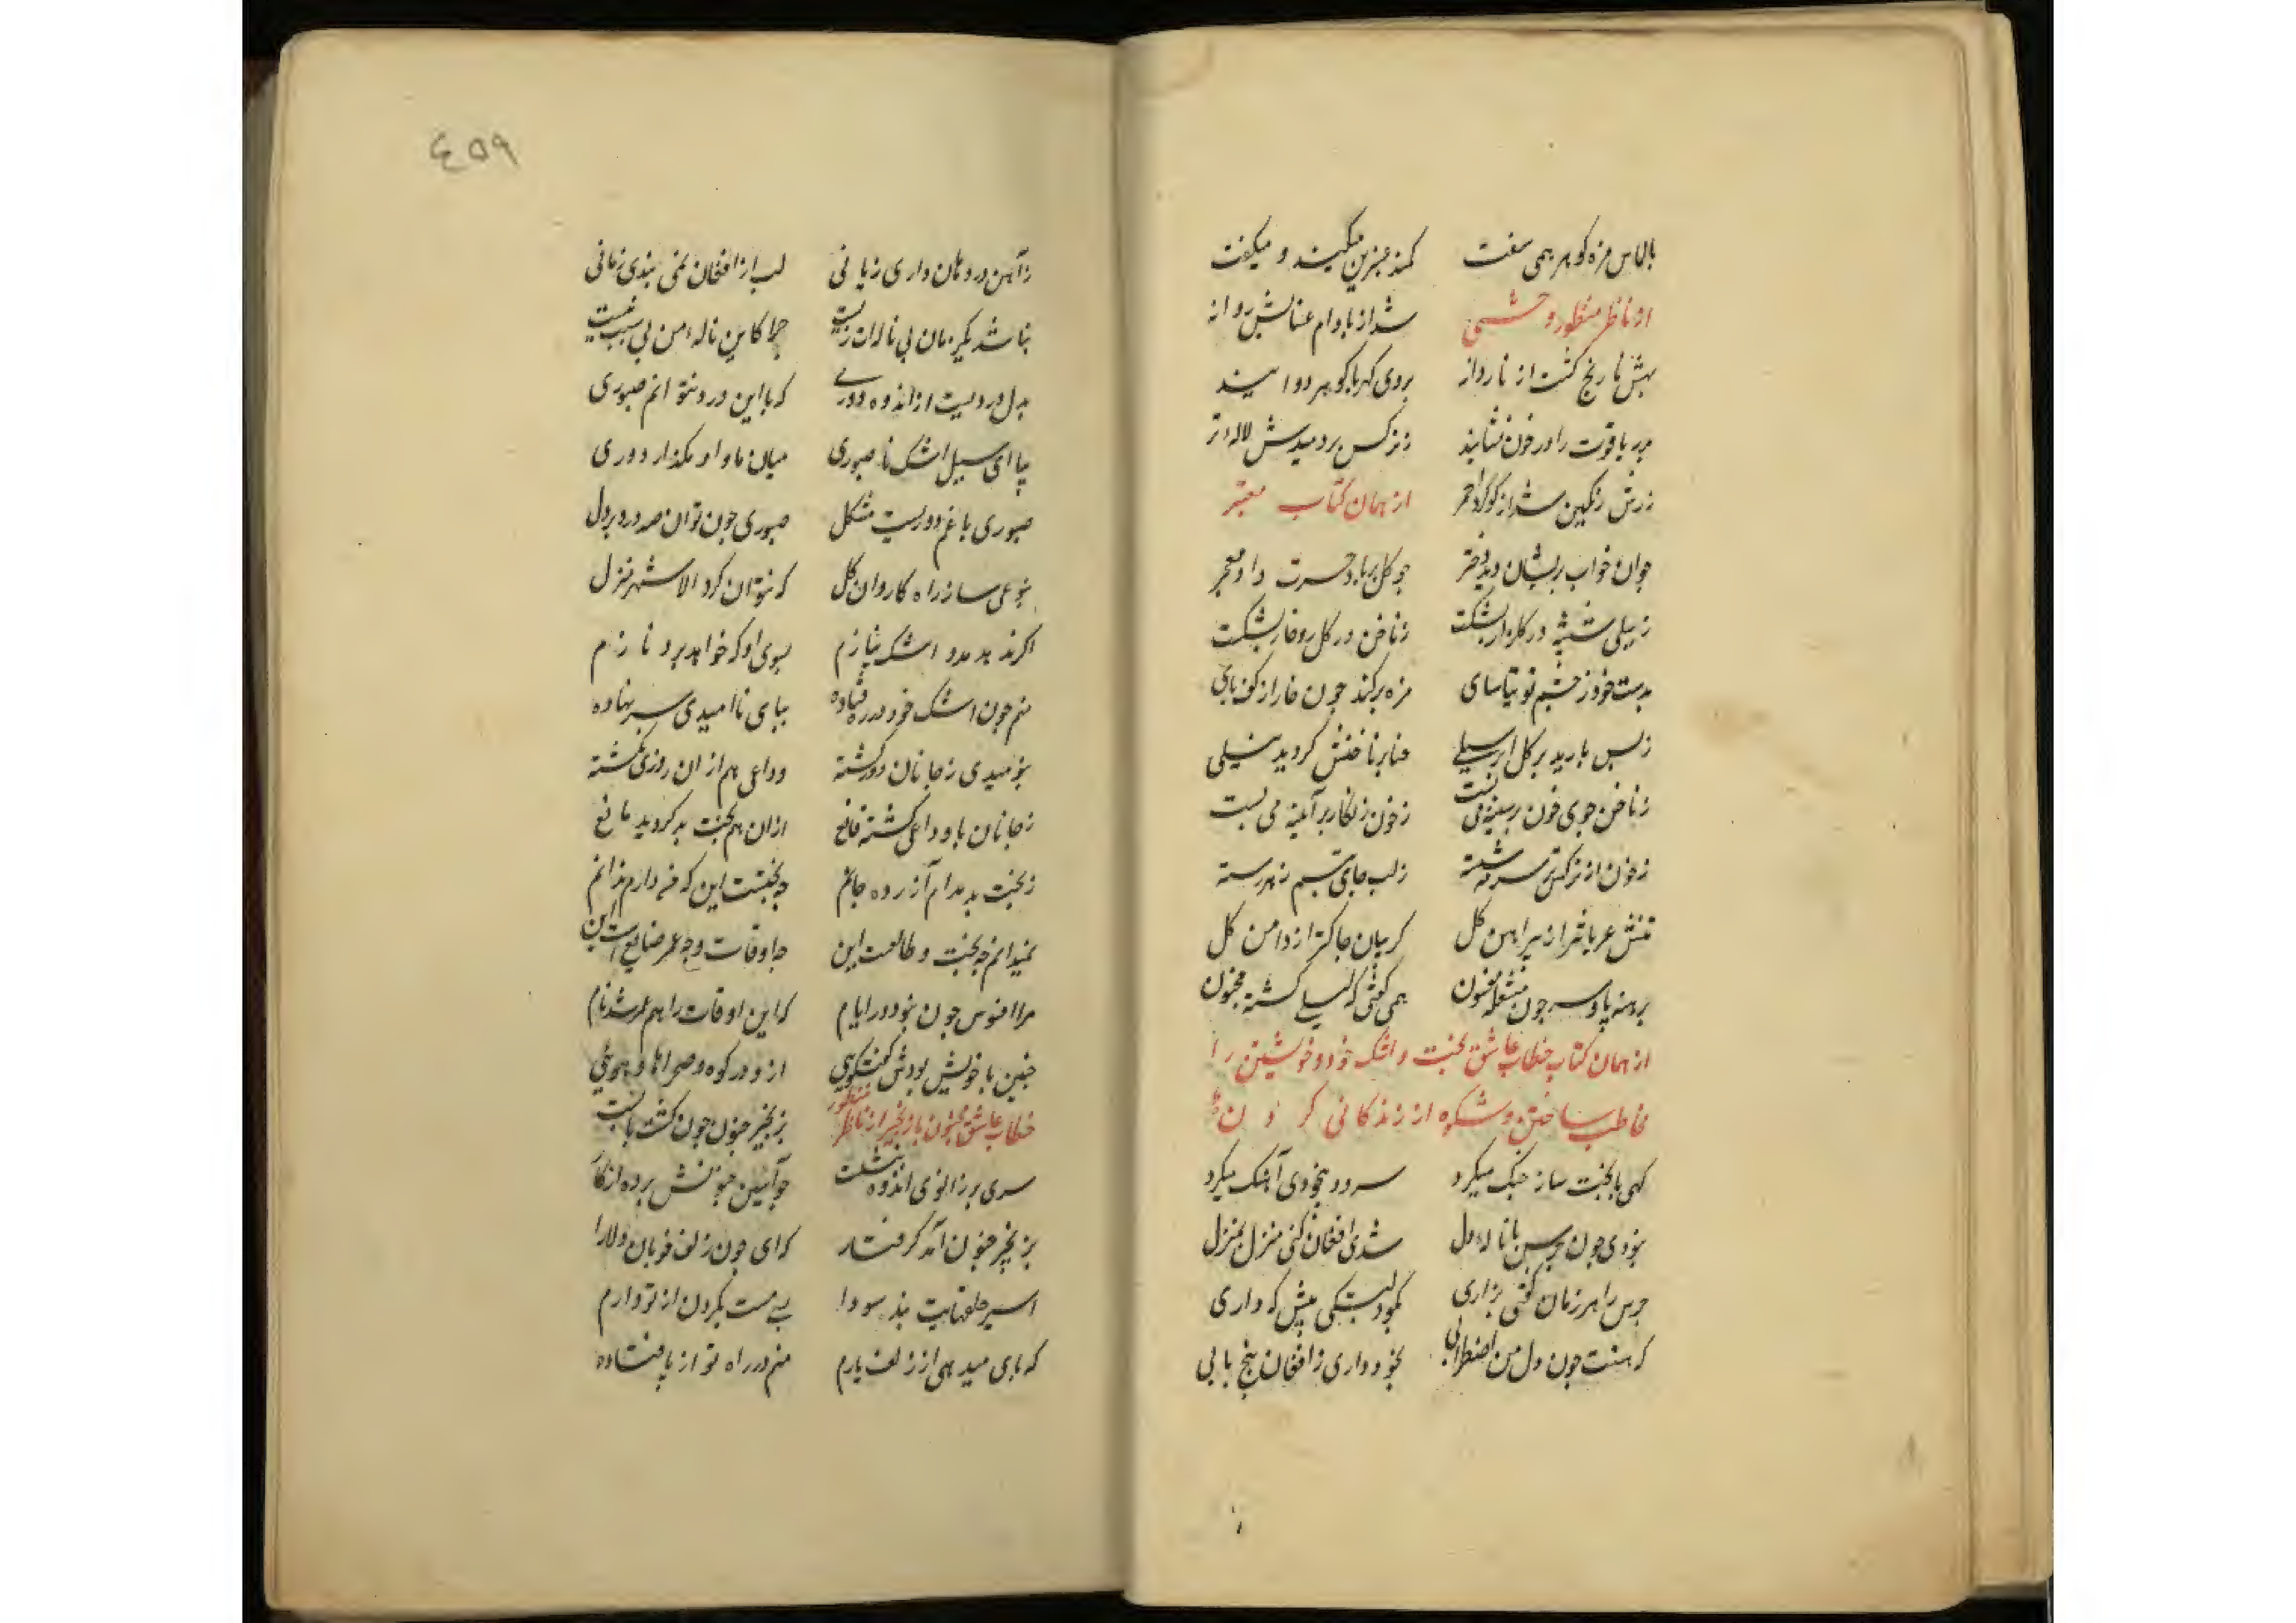 بالماس مژه گوهر همی سفت    کمند عنبرین میکند و میکفت
از ناظر منظور وحشی    شد از بادام عنابش روانه
بهش نارنج گشت از نار دانه    بروی کهربا گوهر دوانید
 یاقوت را در خون نشانید    ز نرکس بر دمیدش لاله تر
زرش رنگین شد از گوگرد احمر    از همان کتاب معتبر
جو ان خواب پریشان دید دختر    جو کل بر باد حسرت داد معجر
ز سیلی  در کلزار بشکست    ز ناخن در کل رو خار بشکست
بدست خود ز چشم  مژه بر کند جون خار از کف پای
ز بس بارید بر کل ابر سیلی    عنابر ناخنش کردید نیلی
ز ناخن جوی خون بر سینه می بست    ز خون زنکار بر آینه می بست
ز خون از نرکس تر سرمه شسته    ز لب جای تبسم زهر رسته
تنش عریانتر از پیراهن کل    کریبان جاکتر از دامن کل
برهنه پا و سر جون مشعله  همی کفتی که لیلی کشته مجنون
از همان کتاب خطاب عاشق بخت و اشک خود و خویشتن را
مخاطب ساختن و شکوه از زندکانی کردن
کهی با بخت ساز جنک میکرد    سرود بیخودی آهنک میکرد
بنودی جون جرس بی ناله دل    شدی افغان کنی منزل بمنزل
جرس را هر زمان کفتی بزاری    بخود  پیش که داری
که هست جون دل من اضطرابی    بخود داری ز افغان پیچ تابی
٤٥٩
ز آهن در دهان داری زبانی    لب از افغان نمی بندی زمانی
نباشد یکزمان بی ناله ات زیست    جرا کاین ناله من بی سبب نیست
بدل دردیست از اندوه دوری    که با این درد نتوانم صبوری
بیا ای سیل اشک ناصبوری    میان ما و او مکذار دوری
صبوری با غم دوریست مشکل    صبوری جون توان صد درد بر دل
بنوعی ساز راه کاروان کل    که نتوان کرد الا شهر منزل
اکر ندهد مدد اشک نیازم    بسوی او که خواهد برد نازم
منم جون اشک خود در ره فتاده    بپای ناامیدی سر نهاده
بنومیدی ز جانان دور کشته    وداعی هم از ان روزی نکشته
ز جانان با وداعی کشته قانع    از ان هم بخت بد کردید مانع
ز بخت بد مدام آزرده جانم    جه بختست این که من دارم ندانم
نمیدانم جه بخت و طالعست این    جه اوقات و جه عمر ضایعست این
مرا افسوس جون نبود در ایام    که این اوقات را هم عمر شد نام
جنین با خویش بودش کفتکویی    از و در کوه و صحرا های و هویی
خطاب عاشق مجنون با زنجیر از ناظر منظور    بزنجیر جنون جون کشت پا بست
سری بر زانوی اندوه بنشست    جو آیین جنونش برده از کار
بزنجیر جنون آمد کرفتار    که ای جون زلف خوبان دلارا
اسیر حلقهایت بند سودا    بسی منت بکردن از تو دارم
که یادی میدهی از زلف یارم    منم در راه تو از پا فتاده